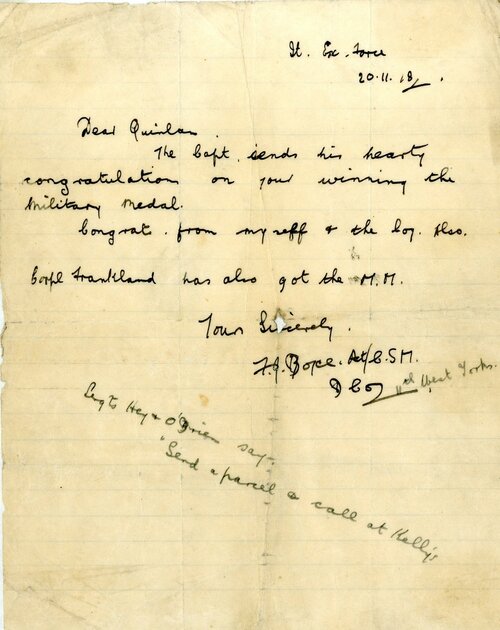 It. Ex. Force
20.11.18.
Dear Quinlan.
The Capt. sends his hearty
congratulation on your winning the
Military Medal.
Congrats. from myself & the Coy. Also.
Corpl Frankland has also got the M.M.
Yours Sincerely.
F.J. A/C.S.M.
D Coy 11th West Yorks.
Sergts Hey & O'Brien say.
"Send a parcel & call at Kelly's